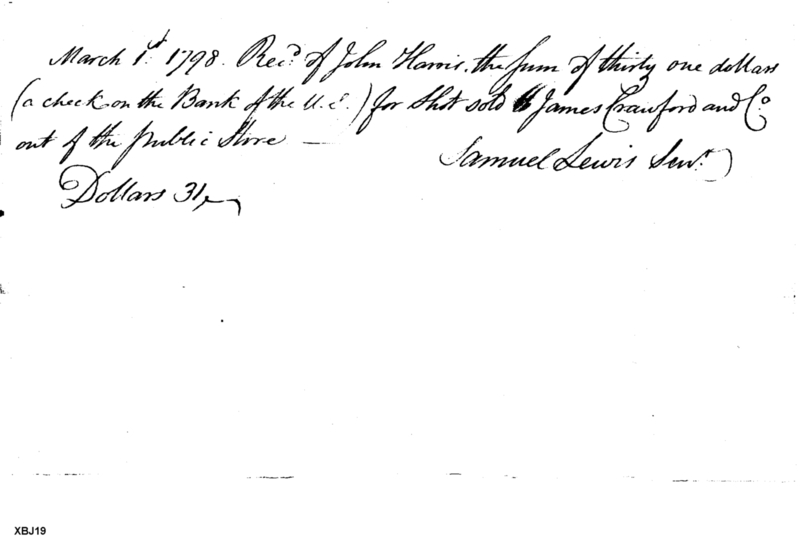 March 1st. 1798. Recd. of John Harris. the sum of thirty one dollars
(a check on the Bank of the U.S.) for Shot sold to James Crawford and Co.
out of the public Store —
Samuel Lewis Senr.
Dollars 31
XBJ19